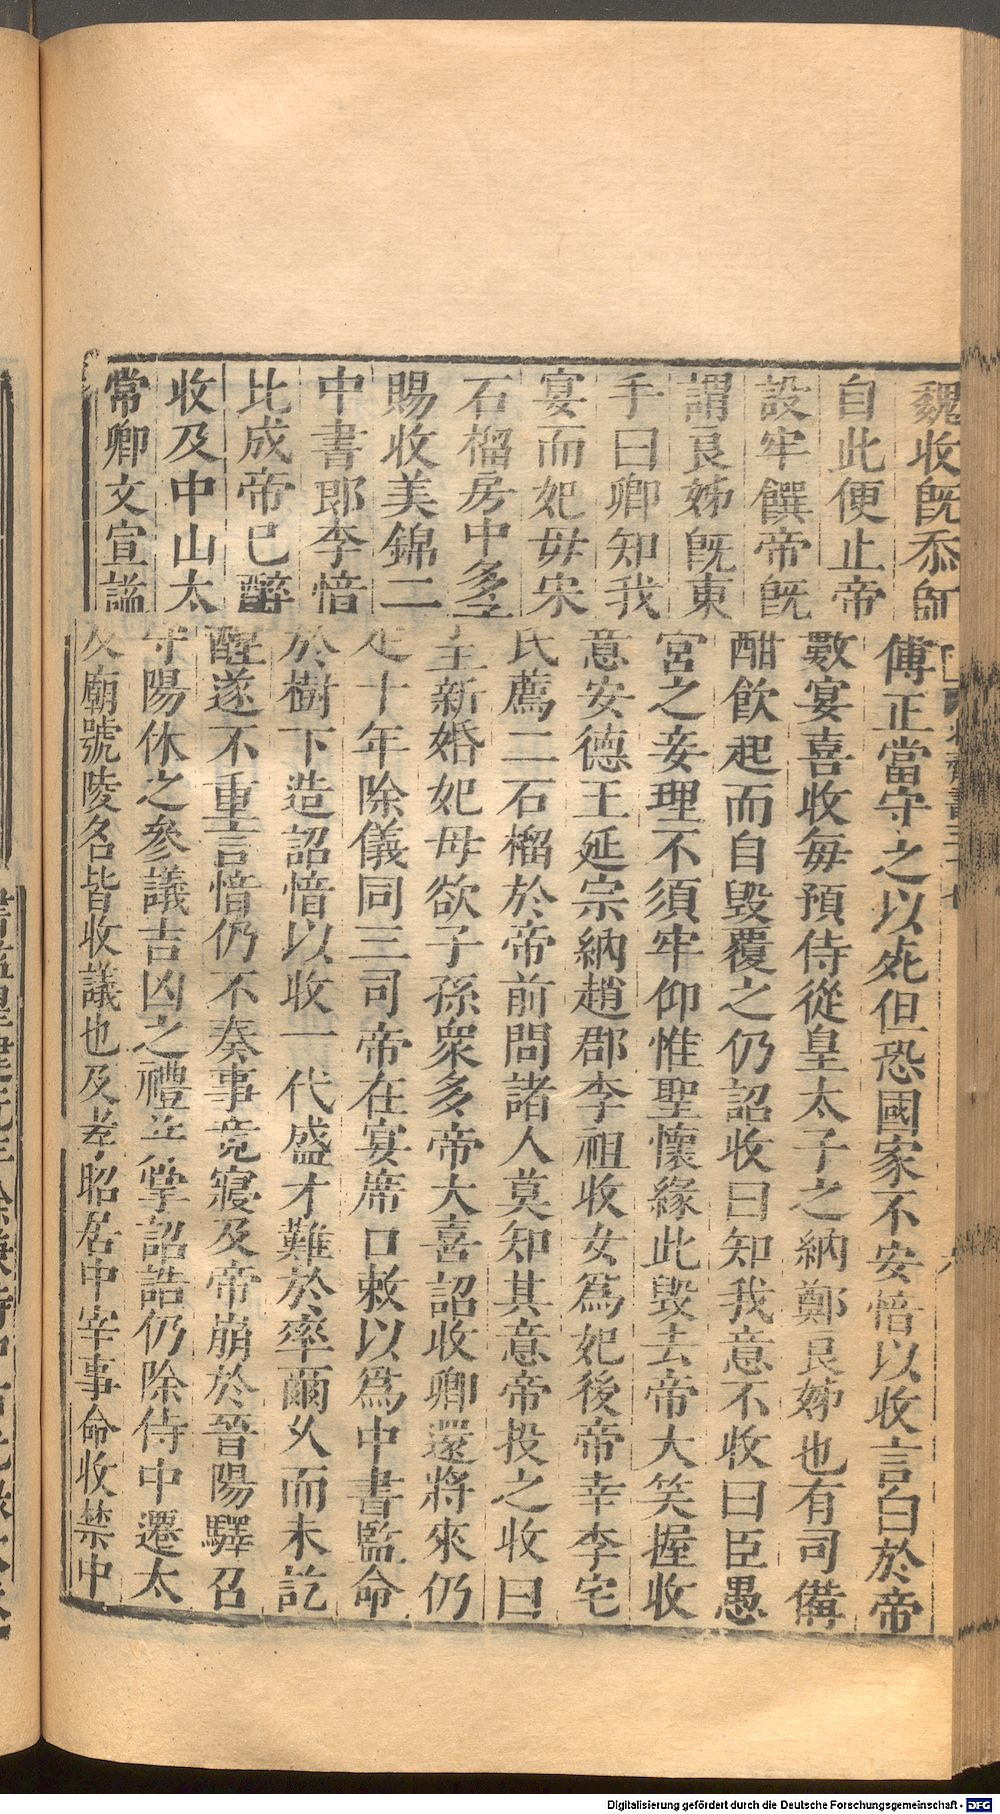 魏收既忝師傅正當守之以死但恐國家不安愔以收言白於帝
自此便止帝數宴喜收每預侍從皇太子之納鄭良娣也有司備
設牢饌帝既酣飲起而自毀覆之仍詔收曰知我意不收曰臣愚
謂良娣既東宮之妾理不須牢仰惟聖懷緣此毀去帝大笑握收
手曰卿知我意安德王延宗納趙郡李祖收女爲妃後帝幸李宅
宴而妃母宋氏薦二石榴於帝前問諸人莫知其意帝投之收曰
石榴房中多子王新婚妃母欲子孫衆多帝大喜詔收卿還將來仍
賜收美錦二疋十年除儀同三司帝在宴席口敕以爲中書監命
中書郎李愔於樹下造詔愔以收一代盛才難於率爾久而未訖
比成帝已醉醒遂不重言愔仍不奏事竟寢及帝崩於晉陽驛召
收及中山太守陽休之參議吉凶之禮並掌詔誥仍除侍中遷太
常卿文宣謚及廟號陵名皆收議也及孝昭居中宰事命收禁中
Digitalisierung gefördert durch die Deutsche Forschungsgemeinschaft - DFG